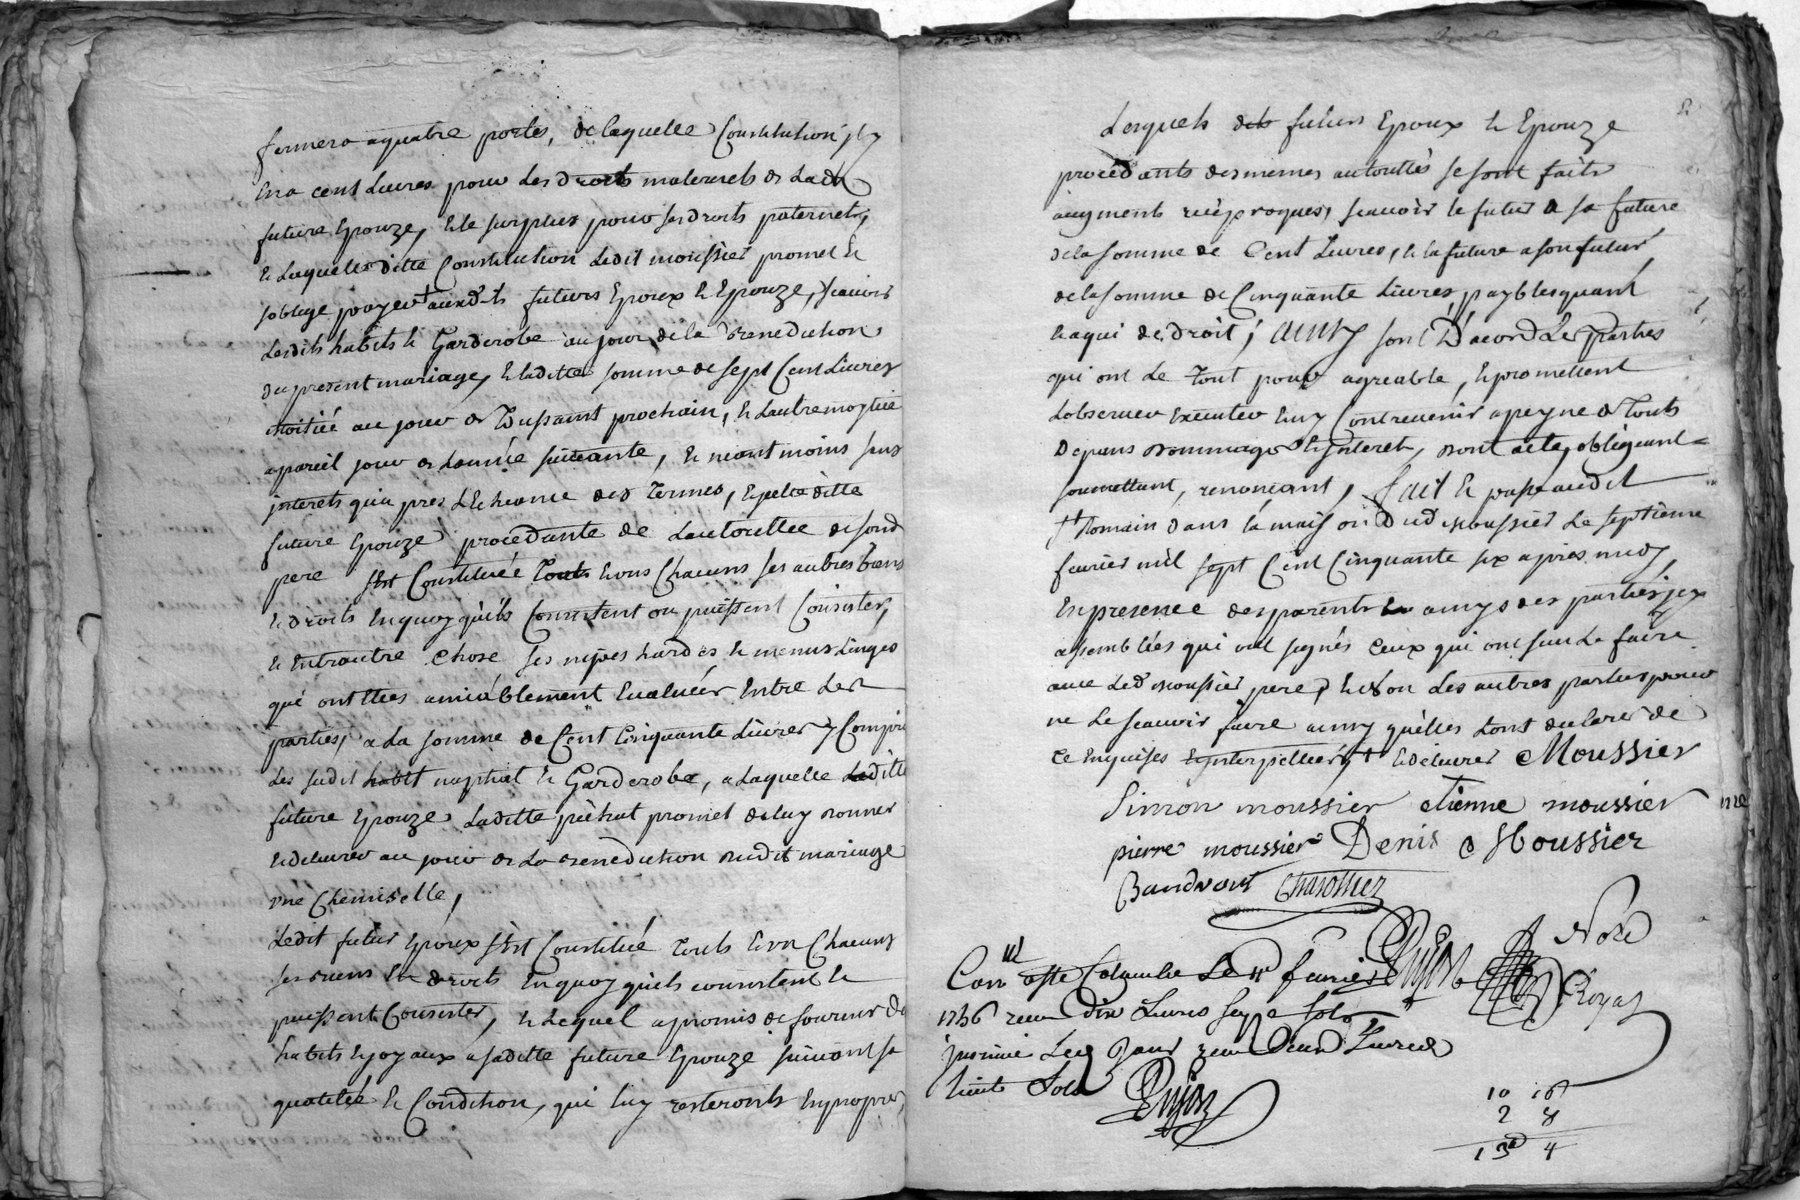 fermera a quatre portes, de laquelle Constitution il y
en a cent Livres pour Les droits maternels de Ladte
future Epouze, Et le surplus pour ses droits paternels,
& Laquelle ditte Constitution Ledit moussier promet &
soblige payer auxdits futurs Epoux & Epouze, scavoir
Lesdits habits & Garderobe au jour de la Benediction
du present mariage, & laditte somme de sept Cent Livres
moitiée au jour de Toussaint prochain, & Lautre moytiée
a pareil jour de Lannée suivante, & neant moins sans
interets qua pres LEcheance des Termes, & que ditte
future Epouze procedante de Lautorittée de sond
pere sEst Constituée Touts & uns Chacuns ses autres biens
& droits En quoy qu'ils Consistent ou puissent Consister,
& Entrautre Chose ses nipes hardes & menus Linges
qui ont Etées amiablement Evaluées Entre Les
parties, a La somme de Cent Cinquante Livres y Compris
Les sudit habit nuptial & Garderobe, a Laquelle Laditte
future Epouze Laditte promet de luy donner
& delivrer au jour de La Benediction dudit mariage
une Chemiselle,
Ledit futur Epoux sEst Constitué Touts & un Chacuns
ses biens & droits En quoy qu'ils consistent &
puissent Consister, & Lequel a promis de fournir des
habits & joyaux a saditte future Epouze suivant sa
qualitée & Condition, qui luy resteronts En propre,
Lesquels dits futurs Epoux & Epouze
procedants des memes autorittés se sont faits
augments reciproques, scavoir le futur a sa future
de la somme de Cent Livres, & la future a son futur
de la somme de Cinquante Livres, payables quand
& a qui de droit, ainsy sont D'acord Les parties
qui ont Le Tout pour agreable, & promettent
Lobserver Executer & ny Contrevenir a peyne de Touts
Depans dommages & Interets, dont acte, obligeant
soumettant, renonceant, fait & passé audit
St Romain dans la maison dud moussier Le septieme
fevrier mil sept Cent Cinquante six apres midy
En presence des parents & amys des parties icy
assemblées qui ont signés Ceux qui ont sceu Le faire
avec Led moussier pere, & non Les autres parties pour
ne Le scavoir faire ainsy quelles Lont declaré de
Ce Enquises & Interpellées & delivrer Moussier
Simon moussier etienne moussier
pierre moussier Denis Moussier
Baudrant Charollier
Dujast Nore
Royal
Conllé a Ste Colombe Le 11e fevrier
1756 receu Dix Livres seize sols
Insinué Led Jour receu Deux Livres
huit Sols Dujast
10 16
2 8
13# 4